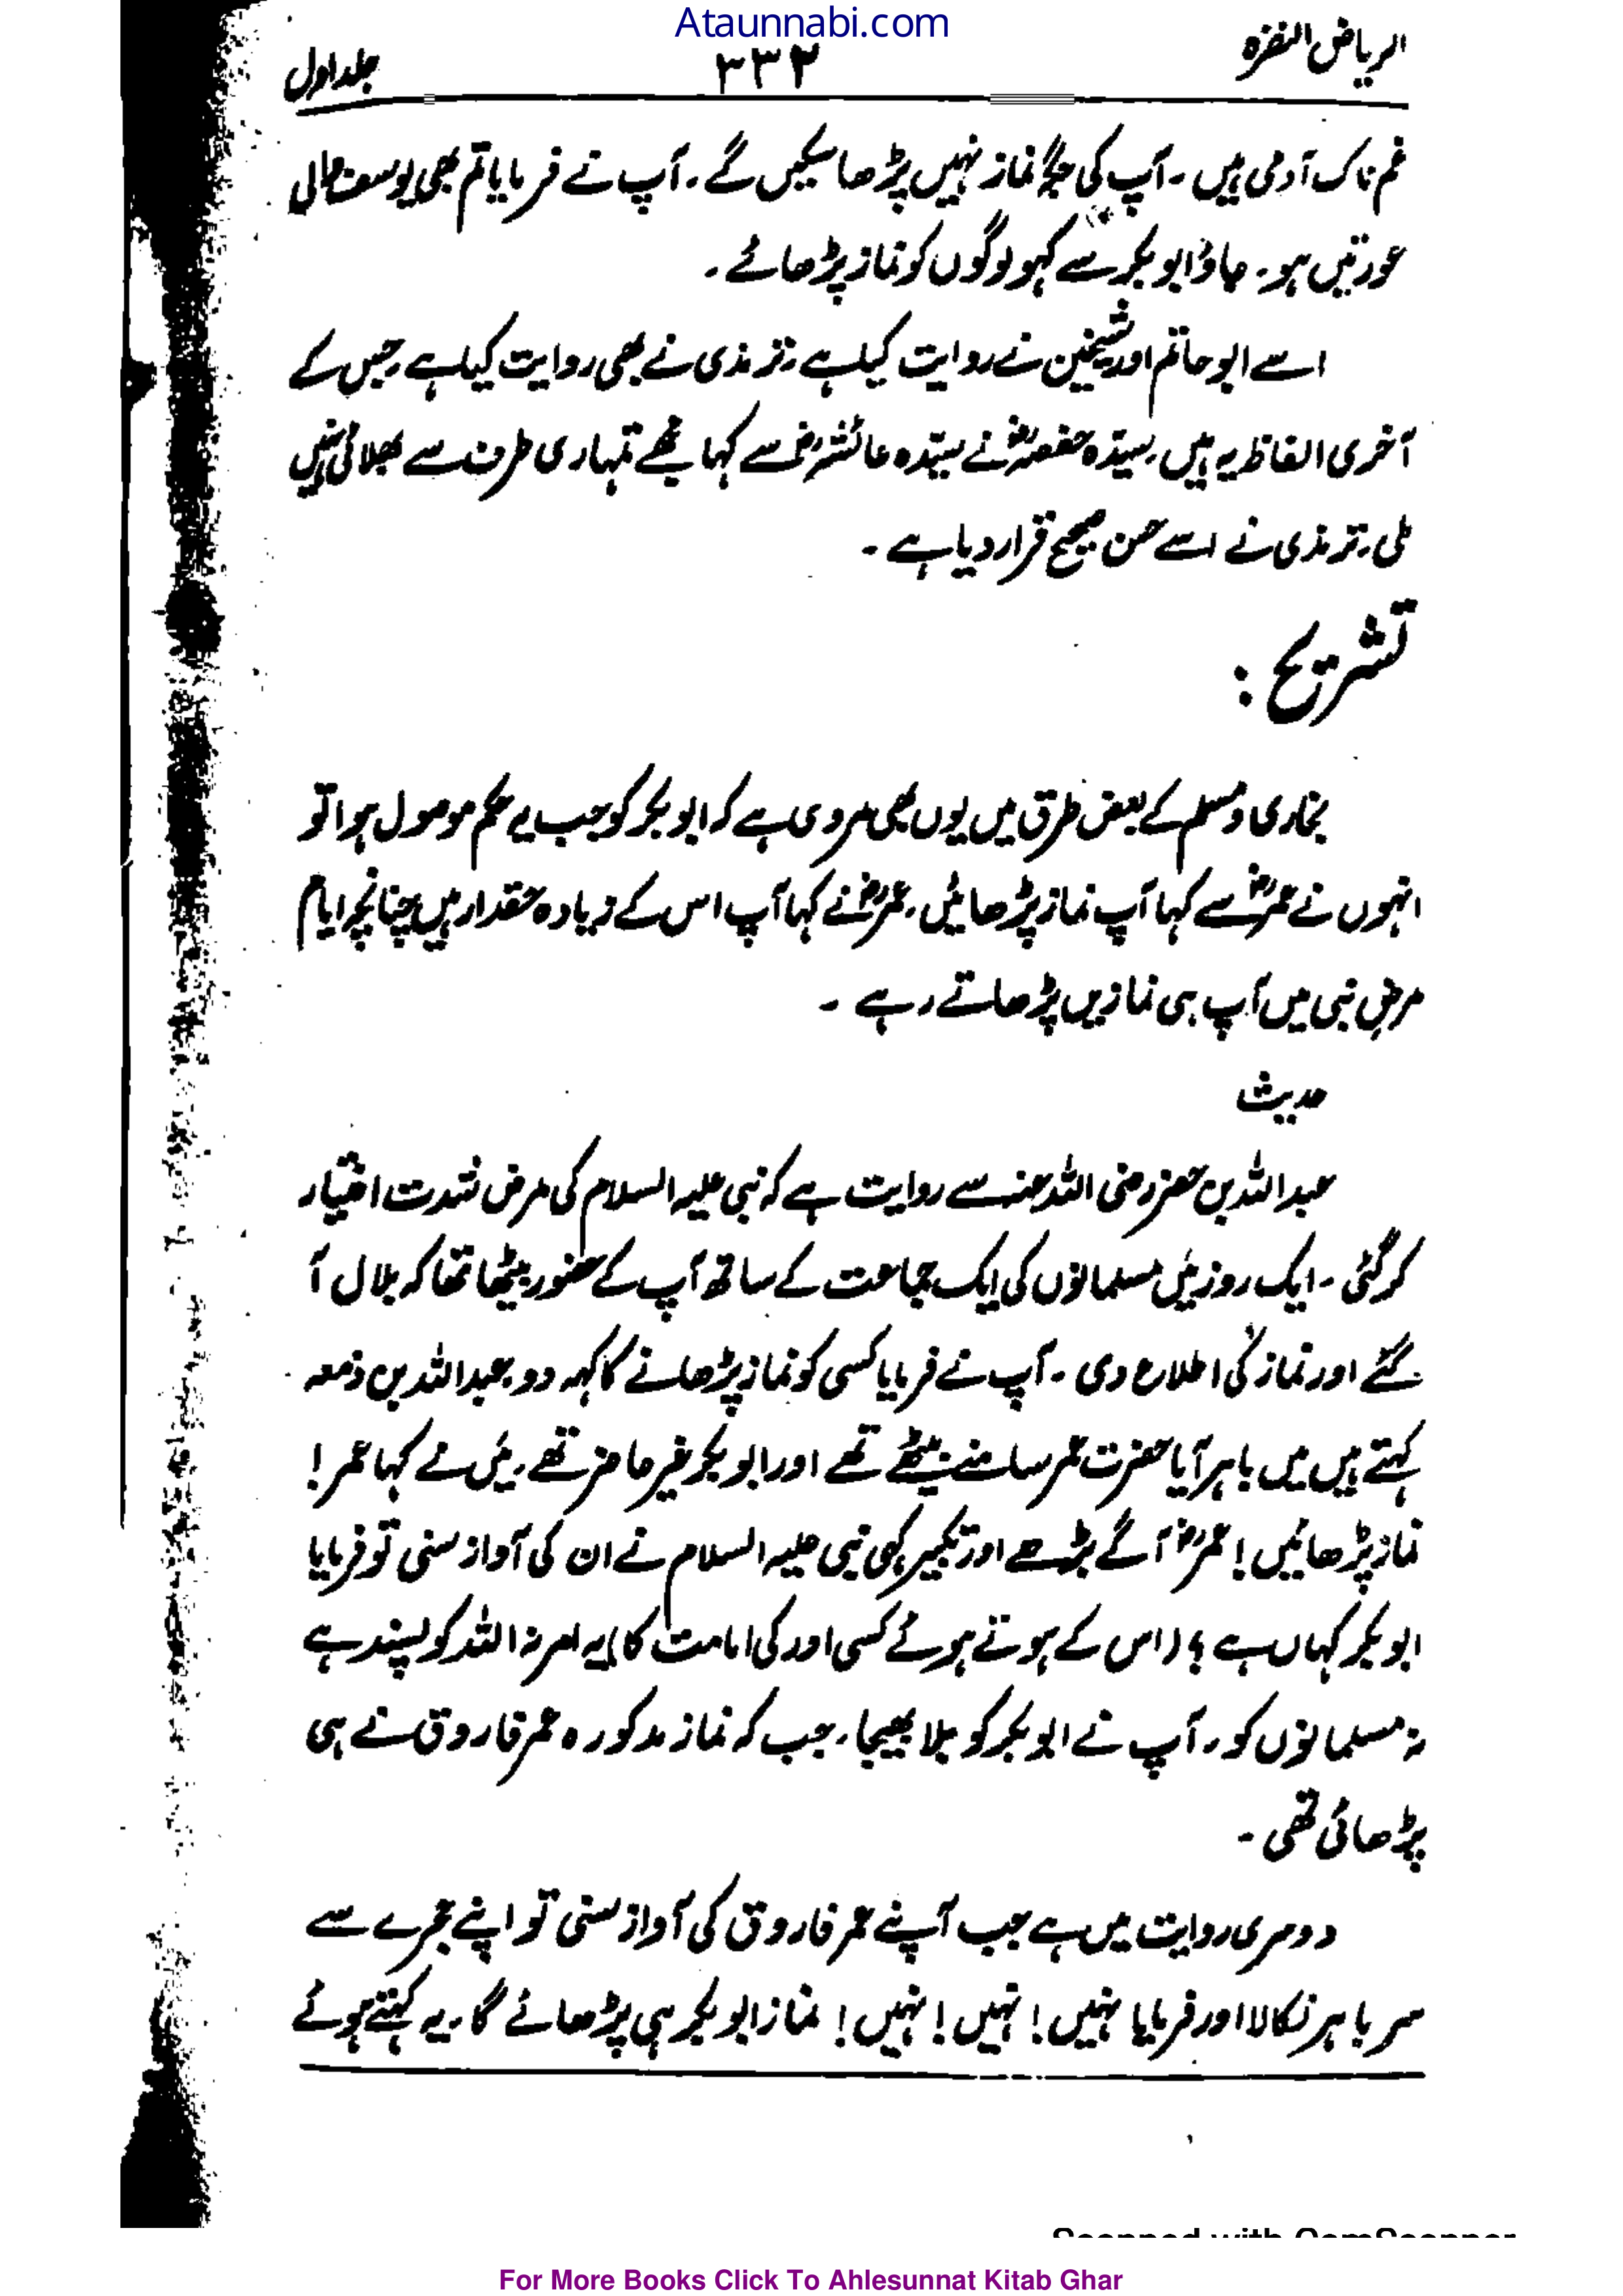 Ataunnabi.com
الریاض النضرہ
۳۳۲
جلد اول
غم ناک آدمی ہیں ۔ آپ کی جگہ نماز نہیں پڑھا سکیں گے ۔ آپ نے فرمایا تم بھی یوسف والی
عورتیں ہو ۔ جاؤ ابو بکر سے کہو لوگوں کو نماز پڑھائے ۔
اسے ابو حاتم اور شیخین نے روایت کیا ہے ، ترمذی نے بھی روایت کیا ہے ، جس کے
آخری الفاظ یہ ہیں ، سیّدہ حفصہؓ نے سیّدہ عائشہؓ سے کہا مجھے تمہاری طرف سے بھلائی نہیں
ملی ، ترمذی نے اسے حسن صحیح قرار دیا ہے ۔
تشریح :
بخاری و مسلم کے بعض طرق میں یوں بھی مروی ہے کہ ابو بکر کو جب یہ حکم موصول ہوا تو
انہوں نے عمرؓ سے کہا آپ نماز پڑھائیں ، عمرؓ نے کہا آپ اس کے زیادہ حقدار ہیں چنانچہ ایام
مرض نبی میں آپ ہی نمازیں پڑھاتے رہے ۔
حدیث
عبد اللہ بن رضی اللہ عنہ سے روایت ہے کہ نبی علیہ السلام کی مرض شدت اختیار
کر گئی ۔ ایک روز میں مسلمانوں کی ایک جماعت کے ساتھ آپ کے حضور بیٹھا تھا کہ بلال آ
گئے اور نماز کی اطلاع دی ۔ آپ نے فرمایا کسی کو نماز پڑھانے کا کہہ دو ، عبد اللہ بن زمعہ
کہتے ہیں میں باہر آیا حضرت عمر سامنے بیٹھے تھے اور ابو بکر غیر حاضر تھے ، میں نے کہا عمر !
نماز پڑھائیں ! عمرؓ آگے بڑھے اور تکبیر کہی نبی علیہ السلام نے ان کی آواز سنی تو فرمایا
ابو بکر کہاں ہے ؟ (اس کے ہوتے ہوئے کسی اور کی امامت کا) یہ امر نہ اللہ کو پسند ہے
نہ مسلمانوں کو ، آپ نے ابو بکر کو بلا بھیجا ، جب کہ نماز مذکورہ عمر فاروق نے ہی
پڑھائی تھی ۔
دوسری روایت میں ہے جب آپ نے عمر فاروق کی آواز سنی تو اپنے حجرے سے
سر باہر نکالا اور فرمایا نہیں ! نہیں ! نہیں ! نماز ابو بکر ہی پڑھائے گا ، یہ کہتے ہوئے
Scanned with CamScanner
For More Books Click To Ahlesunnat Kitab Ghar